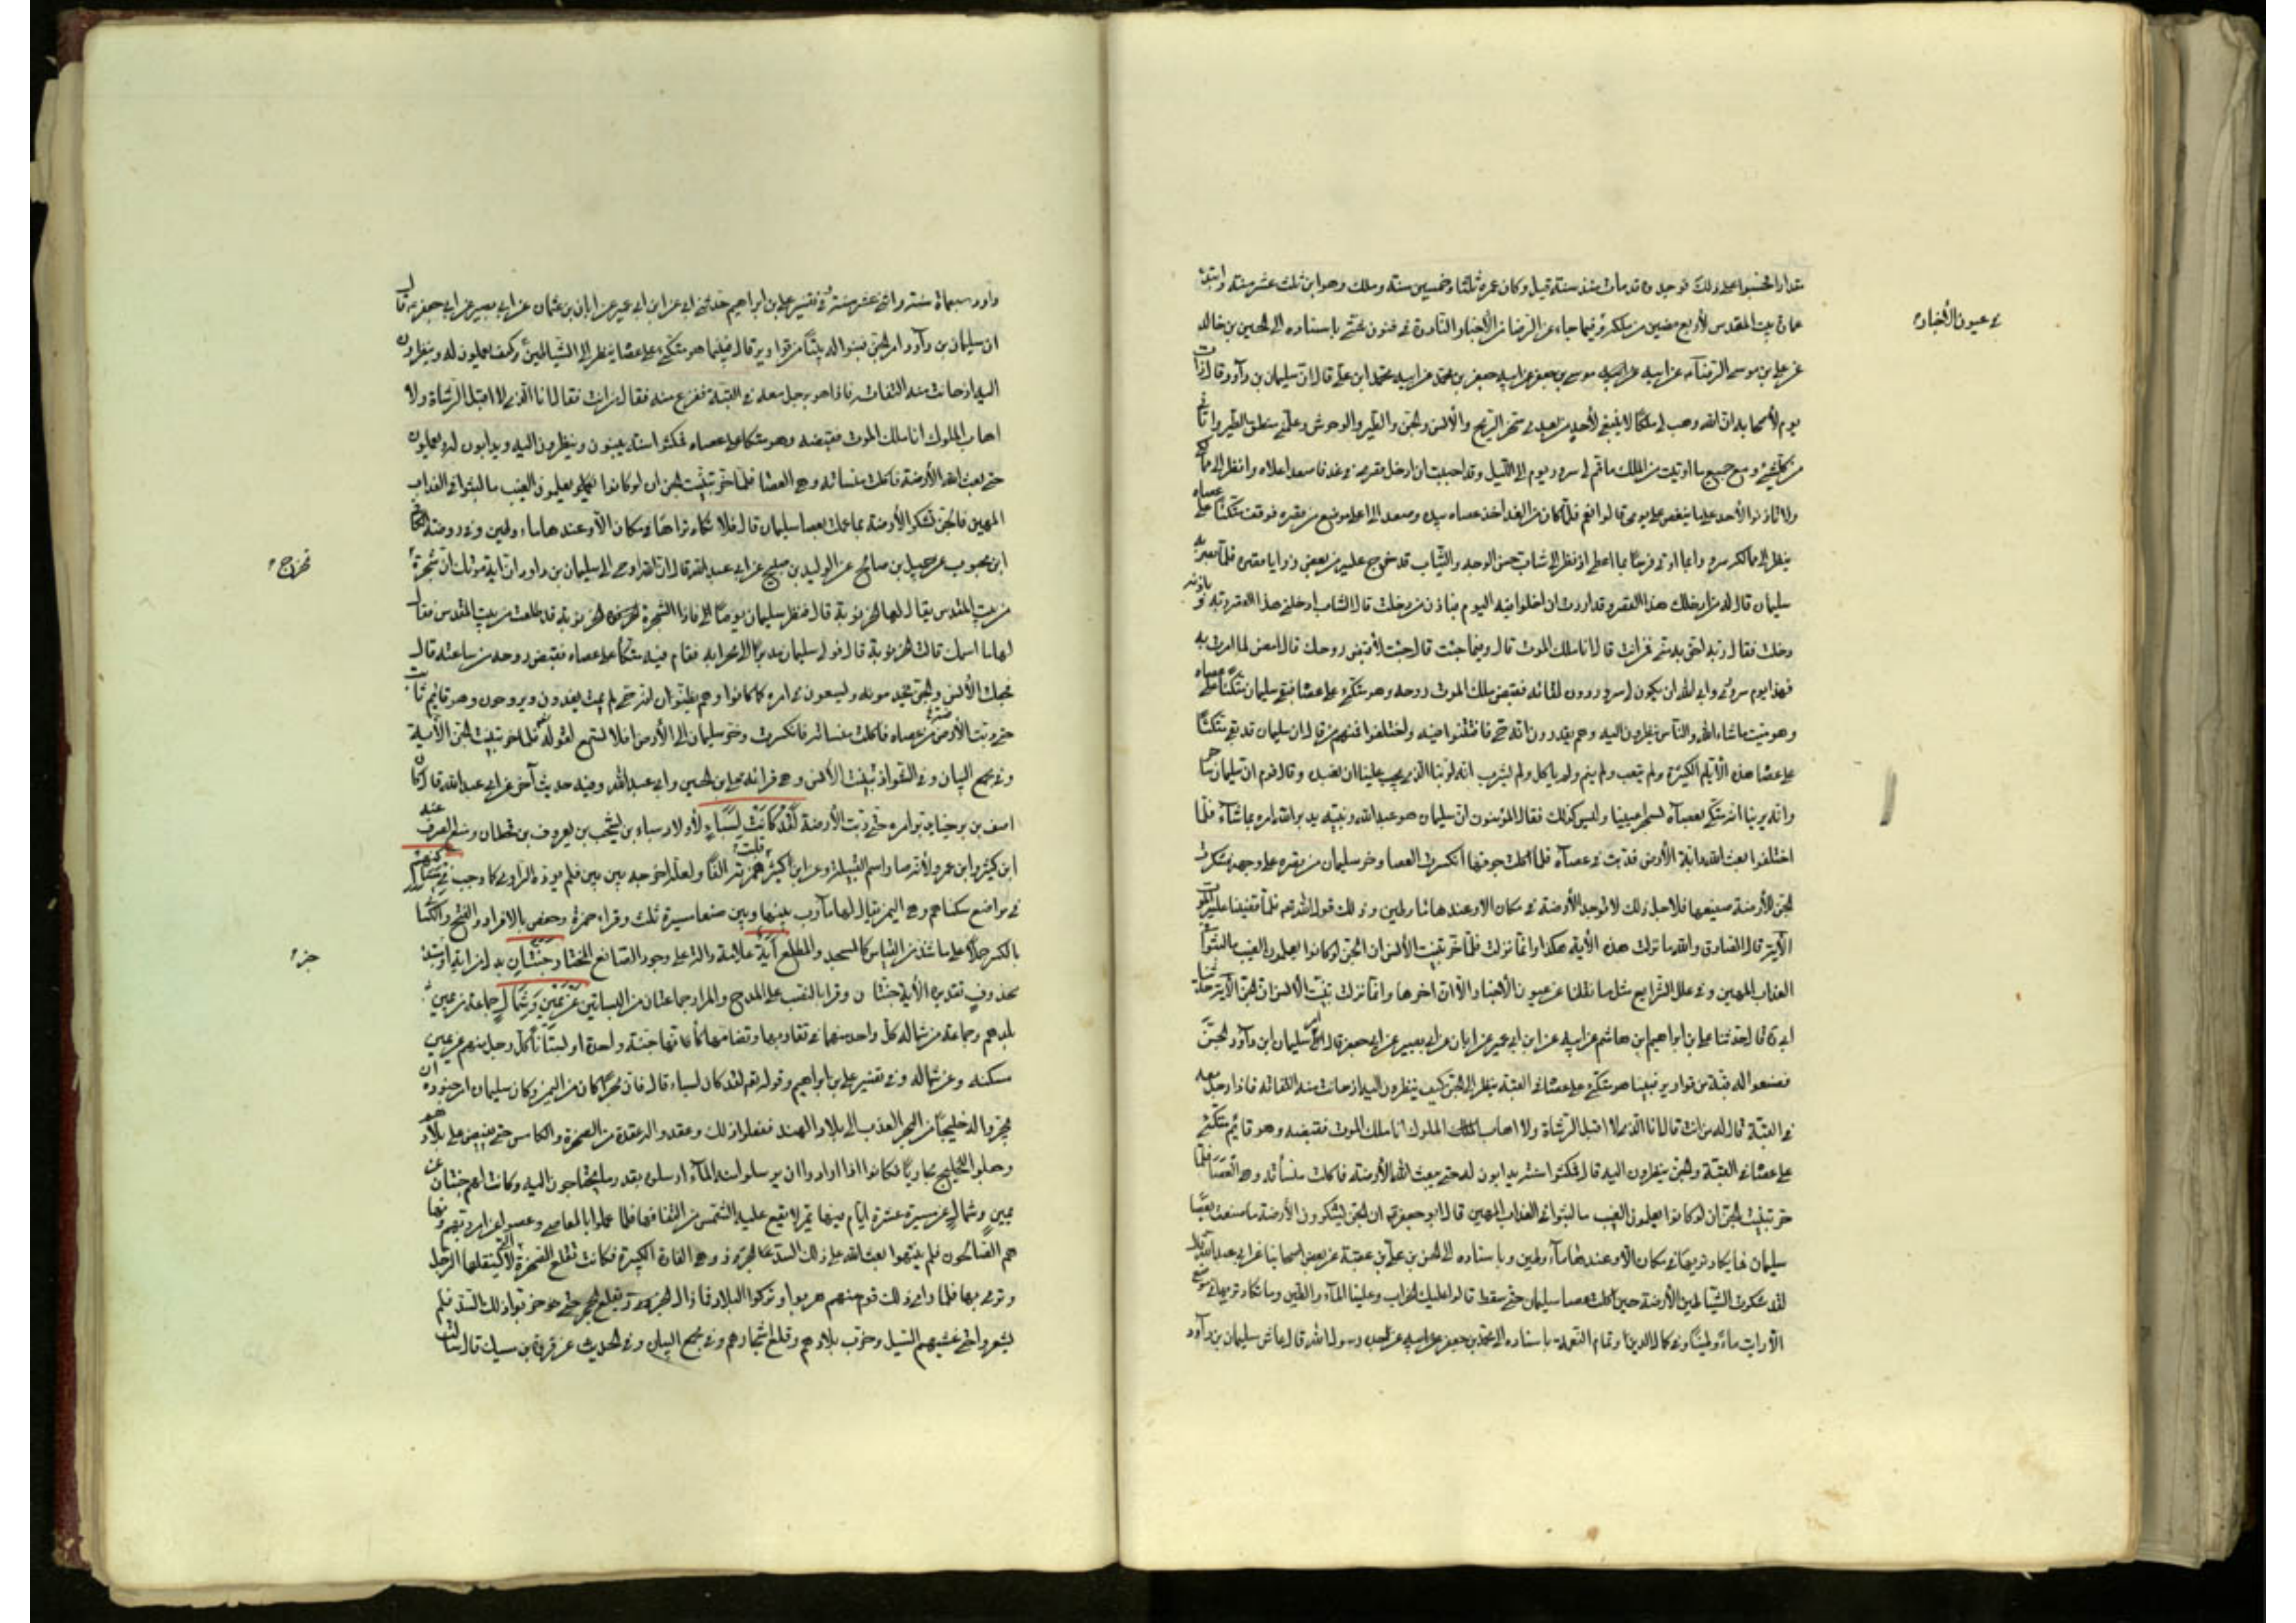 مقدارا فحسبوا على ذلك فوجدوه قد مات منذ سنة قيل وكان عمره ثلثا وخمسين سنة وملك وهو ابن ثلث عشر سنة وابتدء
عمارة بيت المقدس لأربع مضين من ملكه وفيما جاء عن الرضا من الأخبار النادرة في فنون شتى باسناده الى الحسين بن خالد
في عيون الأخبار
عن علي بن موسى الرضا عن ابيه موسى بن جعفر عن ابيه جعفر بن محمد عن ابيه محمد ابن علي قال ان سليمان بن داود قال ذات
يوم لأصحابه ان الله وهب لي ملكا لا ينبغي لأحد من بعدي سخر لي الريح والأنس والجن والطير والوحوش وعلمني منطق الطير واتاني
من كل شيء ومع جميع ما اوتيت من الملك ما تم لي سرور يوم الى الليل وقد احببت ان ادخل قصري في غد فاصعد اعلاه وانظر الى ممالكي
ولا تأذنوا لأحد علي ما ينغص علي يومي قالوا نعم فلما كان من الغد اخذ عصاه بيده وصعد الى اعلى موضع من قصره فوقف متكئا على عصاه
ينظر الى ممالكه سرورا بما اوتي فرحا بما اعطي اذ نظر الى شاب حسن الوجه والثياب قد خرج عليه من بعض زوايا قصره فلما بصر به
سليمان قال له من ادخلك هذا القصر وقد اردت ان اخلو فيه اليوم فباذن من دخلت قال الشاب ادخلني هذا القصر ربه وباذنه
دخلت فقال ربه احق به مني فمن انت قال انا ملك الموت قال وفيما جئت قال جئت لأقبض روحك قال امض لما امرت به
فهذا يوم سروري وابى الله ان يكون لي سرور دون لقائه فقبض ملك الموت روحه وهو متكئ على عصاه فبقي سليمان متكئا على عصاه
وهو ميت ما شاء الله والناس ينظرون اليه وهم يقدرون انه حي فافتتنوا فيه واختلفوا فمنهم من قال ان سليمان قد بقي متكئا
على عصاه هذه الأيام الكثيرة ولم يتعب ولم ينم ولم يأكل ولم يشرب انه لربنا الذي يجب علينا ان نعبده وقال قوم ان سليمان ساحر
وانه يرينا انه متكئ بعصاه لسحر اعيننا وليس كذلك فقال المؤمنون ان سليمان هو عبد الله ونبيه يدبر الله امره بما شآء فلما
اختلفوا بعث الله دابة الأرض فدبت في عصاه فلما اكلت جوفها انكسرت العصا وخر سليمان من قصره على وجهه فشكرت
الجن للأرضة صنيعها فلاجل ذلك لا توجد الأرضة في مكان الا وعندها ماء وطين وذلك قول الله تعم فلما قضينا عليه الموت
الآية قال الصادق والله ما نزلت هذه الآية هكذا وانما نزلت فلما خر تبينت الأنس ان الجن لو كانوا يعلمون الغيب ما لبثوا في
العذاب المهين وفي علل الشرايع مثل ما نقلنا عن عيون الأخبار الا ان اخرها وانما نزلت تبينت الأنس ان الجن الآية حدثنا
ابي قال حدثنا علي بن ابراهيم ابن هاشم عن ابيه عن ابن ابي عمير عن ابان عن ابي بصير عن ابي جعفر قال امر سليمان ابن داود الجن
فصنعوا له قبة من قوارير فبينا هو متكئ على عصاه في القبة ينظر الى الجن كيف ينظرون اليه اذ حانت منه التفاتة فاذا رجل معه
في القبة قال له من انت قال انا الذي لا اقبل الرشاة ولا اهاب الملوك انا ملك الموت فقبضه وهو قائم متكئ
على عصاه في القبة والجن ينظرون اليه قال فمكثوا سنة يدابون له حتى بعث الله الأرضة فاكلت منسأته وهي العصا فلما
خر تبينت الجن ان لو كانوا يعلمون الغيب ما لبثوا في العذاب المهين قال ابو جعفر ان الجن يشكرون الأرضة ما صنعت بعصا
سليمان فما يكاد تريها في مكان الا وعندها مآء وطين وباسناده الى الحسن بن علي بن عقبة عن بعض اصحابنا عن ابي عبد الله قال
لقد شكرت الشياطين الأرضة حين اكلت عصا سليمان حتى سقط قالوا عليك الخراب وعلينا المآء والطين وما تكاد تريها في موضع
الا رايت ماء وطينا وفي كمال الدين وتمام النعمة باسناده الى محمد بن جعفر عن ابيه عن جده رسول الله قال عاش سليمان بن داود
داود سبعماة سنة واثني عشر سنة وفي تفسير علي بن ابراهيم حدثني ابي عن ابن ابي عمير عن ابان بن عثمان عن ابي بصير عن ابي جعفر قال
ان سليمان بن داود امر الجن فبنوا له بيتا من قوارير قال فبينما هو متكئ على عصاه ينظر الى الشياطين وكيف يعملون له وينظرون
اليه اذ حانت منه التفاتة فاذا هو برجل معه في القبة ففزع منه فقال من انت فقال انا الذي لا اقبل الرشاة ولا
اهاب الملوك انا ملك الموت فقبضه وهو متكأ على عصاه فمكثوا سنة يبنون وينظرون اليه ويدابون له ويعملون
حتى بعث الله الأرضة فاكلت منسأته وهي العصا فلما خر تبينت الجن ان لو كانوا يعلمون الغيب ما لبثوا في العذاب
المهين فالجن تشكر الأرضة بما عملت بعصا سليمان قال فلا تكاد تراها في مكان الا وعندها ماء وطين وفي روضة الكافي
ابن محبوب عن جميل بن صالح عن الوليد بن صبيح عن ابي عبد الله قال ان الله اوحى الى سليمان بن داود ان اية موتك ان شجرة
تخرج
من بيت المقدس يقال لها الخرنوبة قال فنظر سليمان يوما فاذا الشجرة الخرنوبة قد طلعت من بيت المقدس فقال
لها ما اسمك قالت الخرنوبة قال فولى سليمان مدبرا الى محرابه فقام فيه متكأ على عصاه فقبض روحه من ساعته قال
فجعلت الأنس والجن يخدمونه ويسعون في امره كما كانوا وهم يظنون انه حي لم يمت يغدون ويروحون وهو قائم ثابت
حتى دبت الأرضة من عصاه فاكلت منسأته فانكسرت وخر سليمان الى الأرض افلا تسمع لقوله فلما خر تبينت الجن الآية
وفي مجمع البيان وفي الشواذ تبينت الأنس وهي قرائة علي بن الحسين وابي عبد الله وفيه حديث آخر عن ابي عبد الله قال كان
اصف بن برخيا يدبر امره حتى دبت الأرضة لقد كانت لسباء لأولاد سباء بن يشجب بن يعرب بن قحطان ومنع الصرف عنه
ابن كثير وابن عمرو لأنه صار اسم القبيلة وعن ابن كثير قلب همزته الفا ولعله اخرجه بين بين فلم يؤده الراوي كما وجب في مسكنهم
في مواضع سكناهم وهي اليمن يقال لها مآرب بينها وبين صنعا مسيرة ثلث وقراء حمزة وحفص بالافراد والفتح والكسائي
بالكسر حملا على ما شذ من القياس كالمسجد والمطلع آية علامة دالة على وجود الصانع المختار جنتان بدل من اية او مبتدء
خبر
محذوف تقديره الأية جنتان وقرا بالنصب على المدح والمراد جماعتان من البساتين عن يمين وشمال جماعة عن يمين
بلدهم وجماعة عن شماله كل واحد منهما في تقاربهما وتضامهما كأنهما جنة واحدة او بستانا كل رجل منهم عن يمين
مسكنه وعن شماله وفي تفسير علي بن ابراهيم وقوله تعم لقد كان لسباء قال فان بحرا كان من اليمن وكان سليمان امر جنوده ان
يجروا له خليجا من البحر العذب الى بلاد الهند ففعلوا ذلك وعقدوا له عقدة من الصخرة والكلس حتى يفيض على بلادهم
وجعلوا للخليج مجاريا فكانوا اذا ارادوا ان يرسلوا منه المآء ارسلوه بقدر ما يحتاجون اليه وكانت لهم جنتان عن
يمين وشمال عن مسيرة عشرة ايام فيها يمر لا يقع عليه الشمس من التفافها فلما عملوا بالمعاصي وعتوا عن امر ربهم ونهاهم
الصالحون فلم ينتهوا بعث الله على ذلك السد الجرذ وهي الفارة الكبيرة فكانت تقلع الصخرة التي لا يستقلها الرجل
وترمي بها فلما راى ذلك قوم منهم هربوا وتركوا البلاد فما زال الجرذ يقلع الحجر حتى خربوا ذلك السد فلم
يشعروا حتى غشيهم السيل وخرب بلادهم وقلع اشجارهم وفي مجمع البيان وفي الحديث عن فروة بن مسيك قال سالت